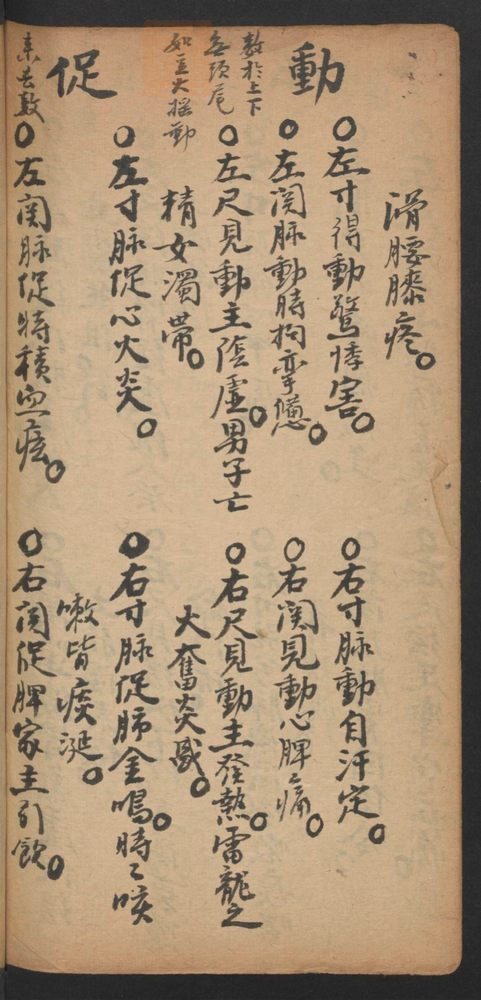 滑腰膝疼。
動
數於上下
無頭尾
如豆大搖動
○左寸得動驚悸害。
○右寸脉動自汗定。
○左関脉動時拘攣憊。
○右関見動心脾痛。
○左尺見動主陰虛。男子亡
精女濁帶。
○右尺見動主發熱。雷龍之
大奮炎
促
来去数
○左寸脉促心火炎。
○右寸脉促肺金鳴。時々咳
嗽皆痰涎。
○左関脉促時積血
○右関促脾家主引飲。